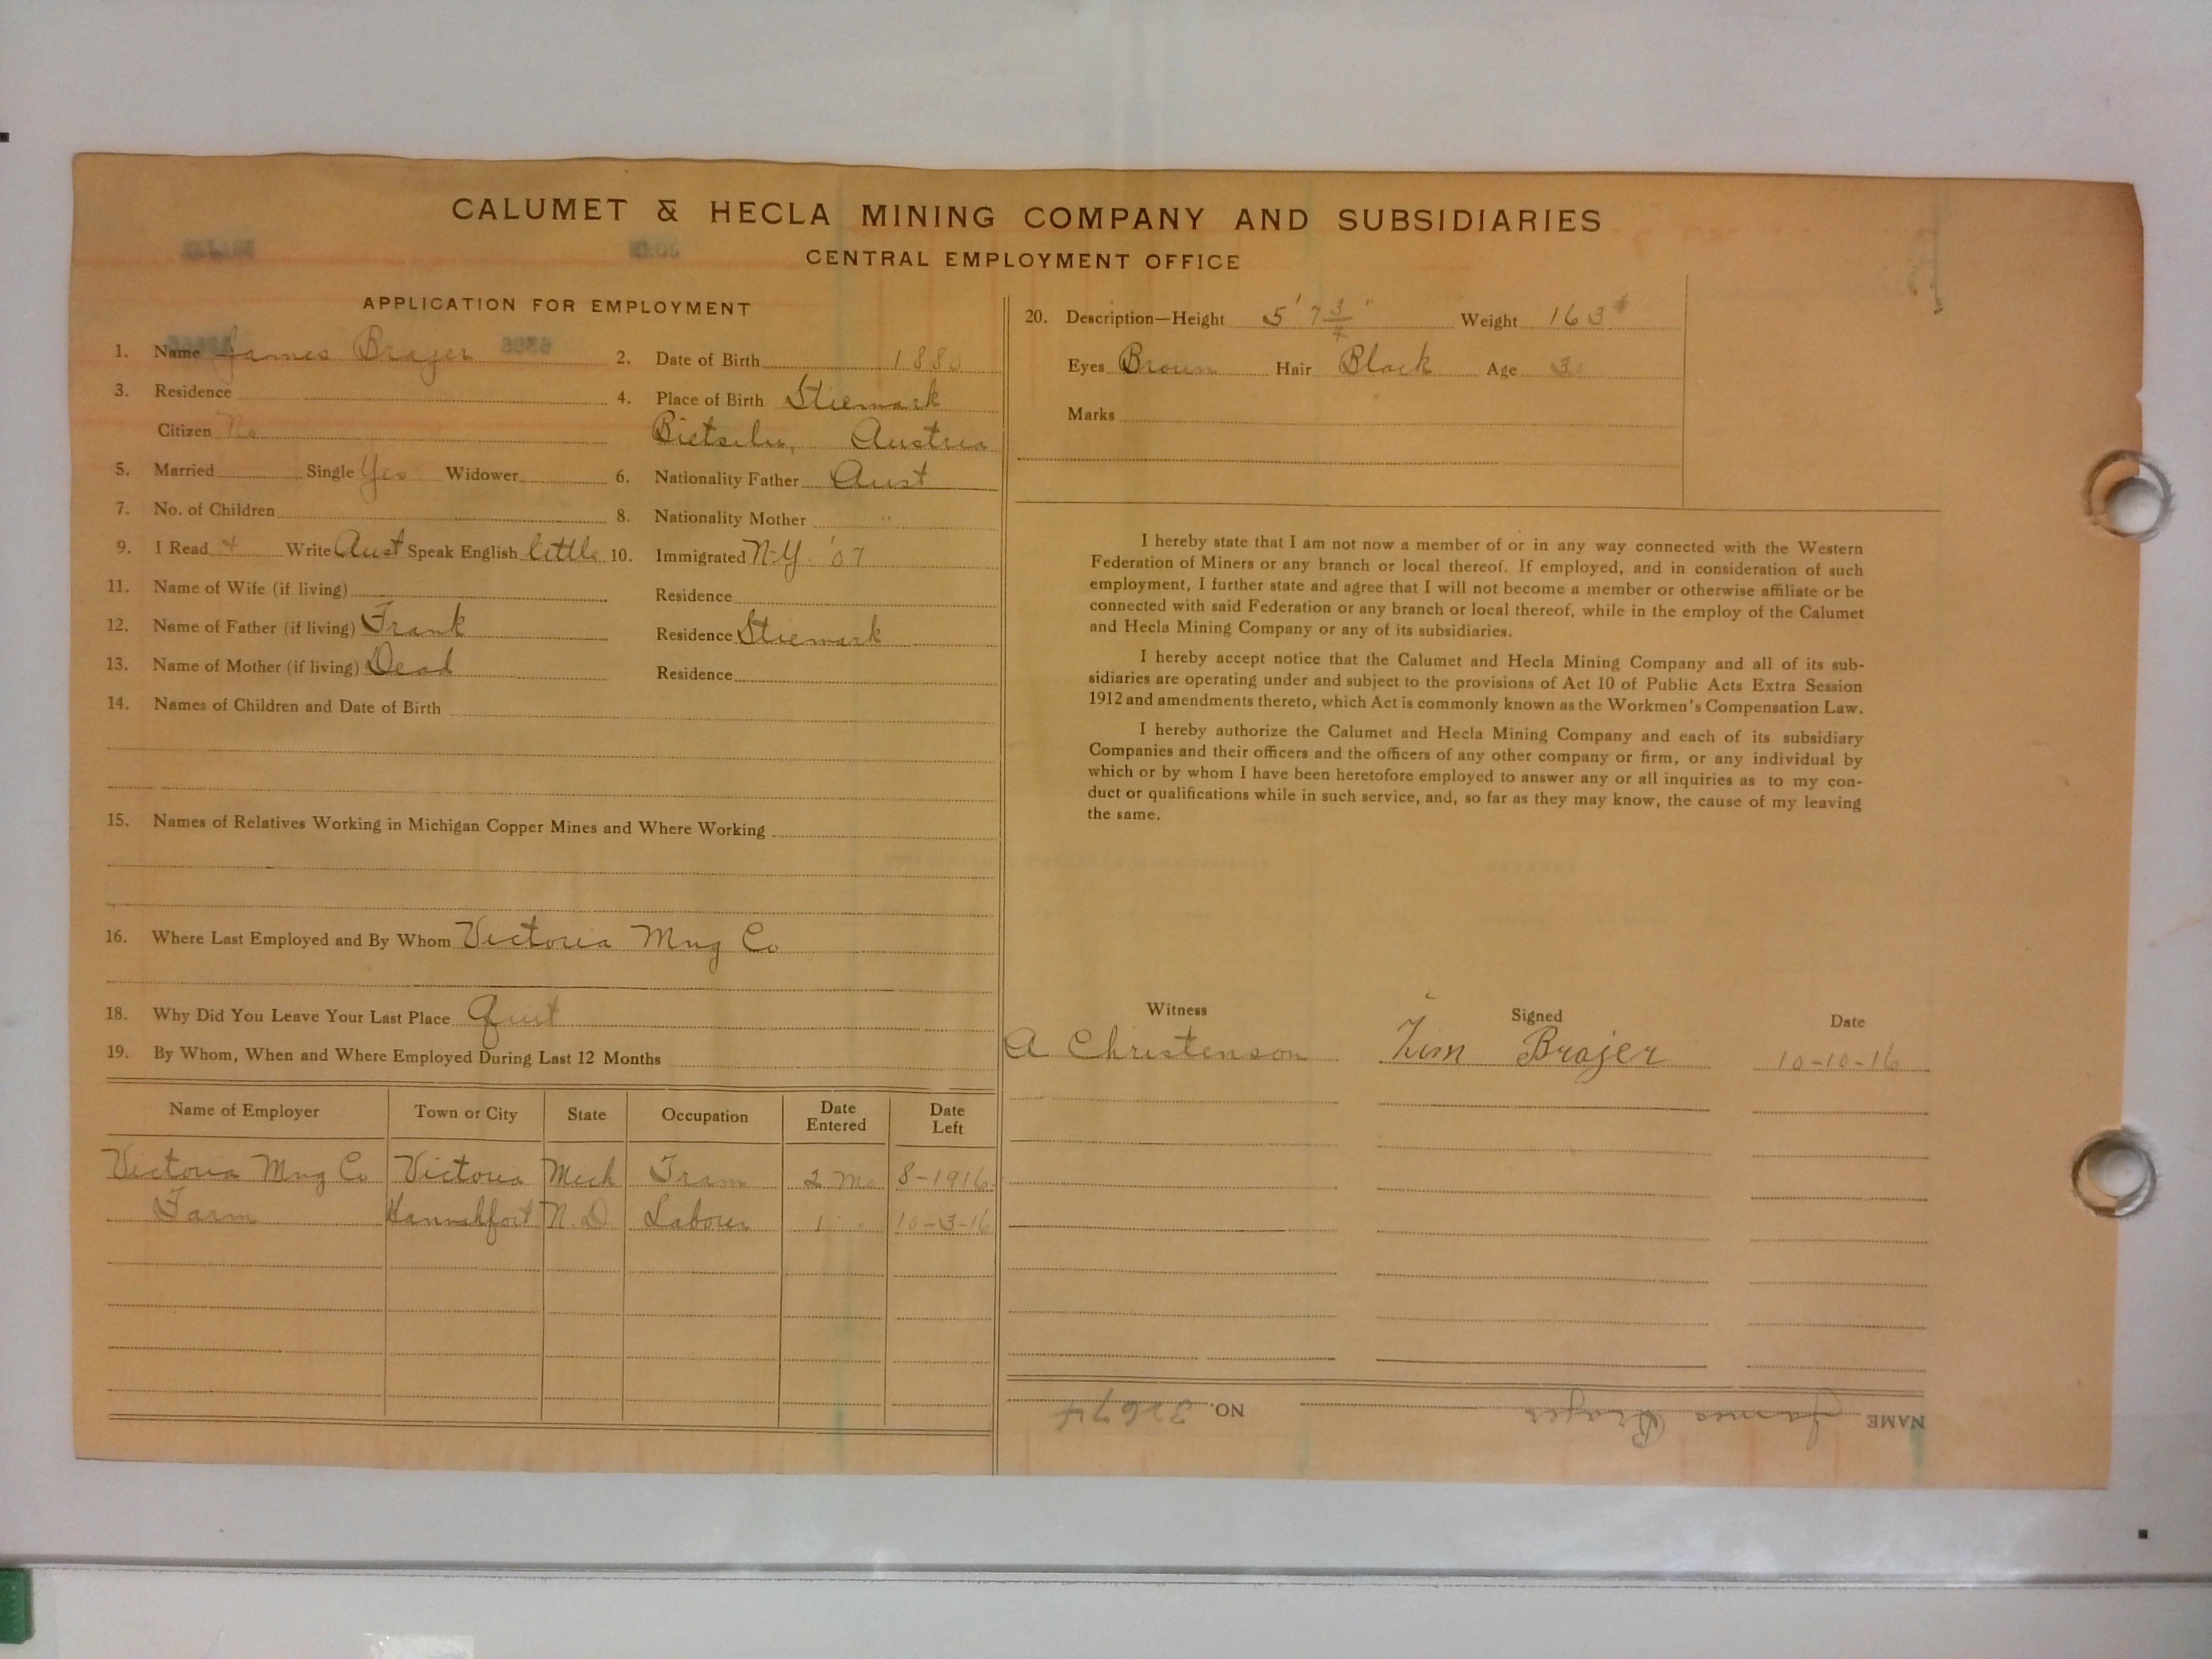 CALUMET & HECLA MINING COMPANY AND SUBSIDIARIES
CENTRAL EMPLOYMENT OFFICE
APPLICATION FOR EMPLOYMENT
1. Name James Brajer 2. Date of Birth 1880
3. Residence 4. Place of Birth Stiemark
Citizen No Austria
5. Married Single Yes Widower 6. Nationality Father Aust
7. No. of Children 8. Nationality Mother "
9. I Read + Write Aust Speak English little 10. Immigrated N-Y. '07
11. Name of Wife (if living) Residence
12. Name of Father (if living) Frank Residence Stiemark
13. Name of Mother (if living) Dead Residence
14. Names of Children and Date of Birth
15. Names of Relatives Working in Michigan Copper Mines and Where Working
16. Where Last Employed and By Whom Victoria Mng Co
18. Why Did You Leave Your Last Place Quit
19. By Whom, When and Where Employed During Last 12 Months
Name of Employer Town or City State Occupation Date Entered Date Left
Victoria Mng Co Victoria Mich Tram 2 mo 8-1916
Farm N.D. Laborer 1 " 10-3-16
20. Description—Height 5' 7 3/4" Weight 163#
Eyes Brown Hair Black Age
Marks
I hereby state that I am not now a member of or in any way connected with the Western
Federation of Miners or any branch or local thereof. If employed, and in consideration of such
employment, I further state and agree that I will not become a member or otherwise affiliate or be
connected with said Federation or any branch or local thereof, while in the employ of the Calumet
and Hecla Mining Company or any of its subsidiaries.
I hereby accept notice that the Calumet and Hecla Mining Company and all of its sub-
sidiaries are operating under and subject to the provisions of Act 10 of Public Acts Extra Session
1912 and amendments thereto, which Act is commonly known as the Workmen's Compensation Law.
I hereby authorize the Calumet and Hecla Mining Company and each of its subsidiary
Companies and their officers and the officers of any other company or firm, or any individual by
which or by whom I have been heretofore employed to answer any or all inquiries as to my con-
duct or qualifications while in such service, and, so far as they may know, the cause of my leaving
the same.
Witness Signed Date
A Christenson Brajer 10-10-16
NAME James Brajer NO. 32674